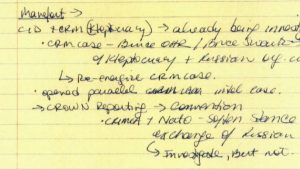 Manafort →
CID + CRM (Kleptocracy) → already being
• CRM case - Bruce Ohr / Bruce
of Kleptocracy + Russian org. c
↳ Re-energize CRM case.
• opened parallel intel case.
→ CROWN Reporting → Convention
• Crimea + Nato - Soften Stance
exchange of Russian
↳ Investigate, But not.